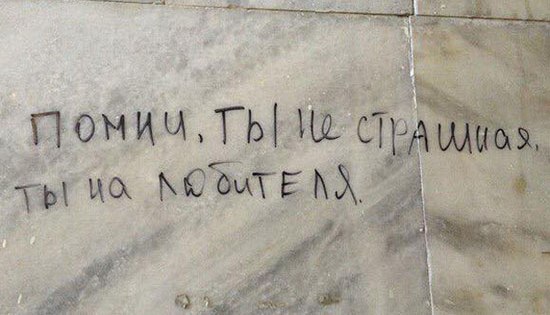 Помни, ты не страшная.
ты на любителя.